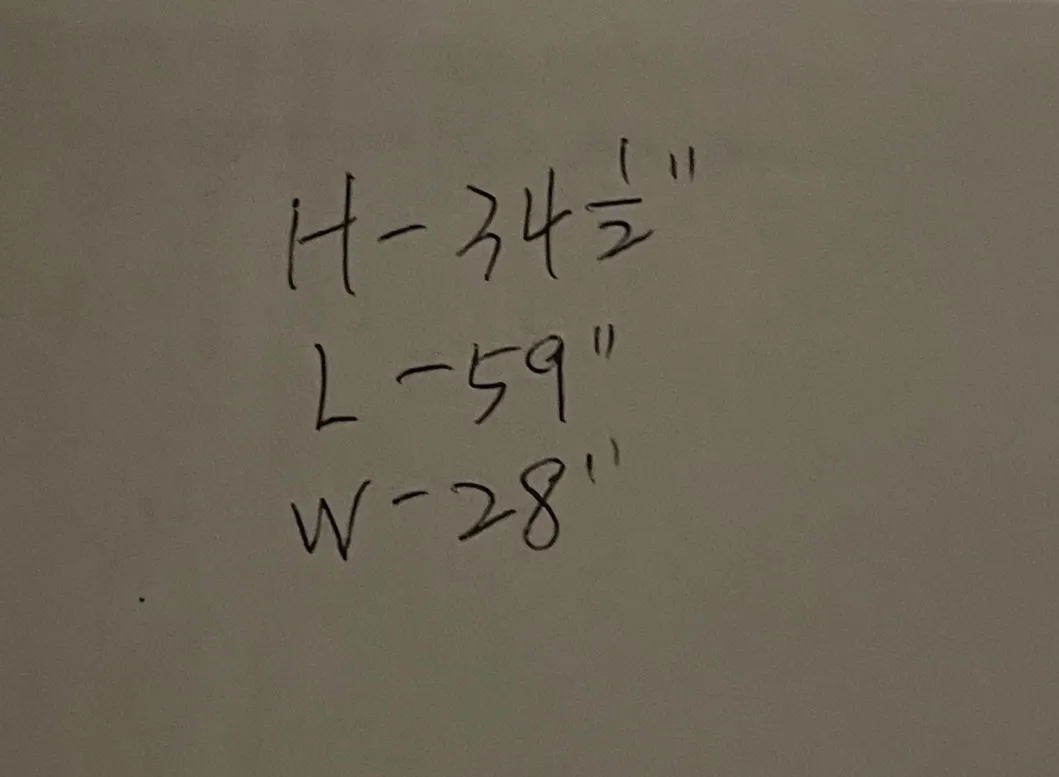 H - 34 1/2"
L - 59"
W - 28"